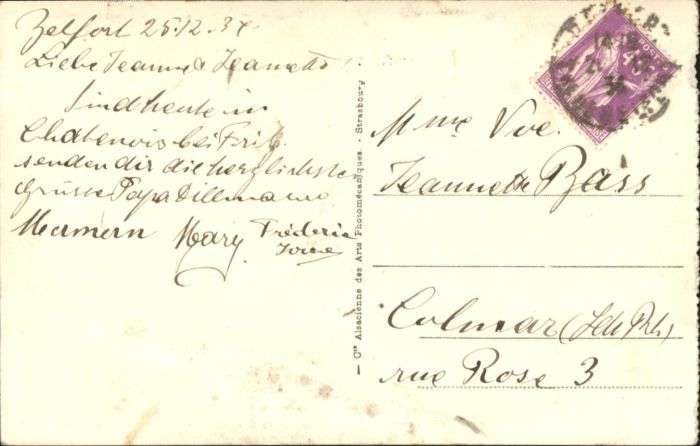 Belfort 25.12.34
Liebe Jeanne & Jeannette
Sind heute in
Chatenois bei Fritz
senden dir die herzlichste
Grüsse Papa Dillmann
Mary Frédéric
— Cie Alsacienne des Arts Photomécaniques. - Strasbourg
Mme Vve.
Jeannette Bass
Colmar
rue Rose 3